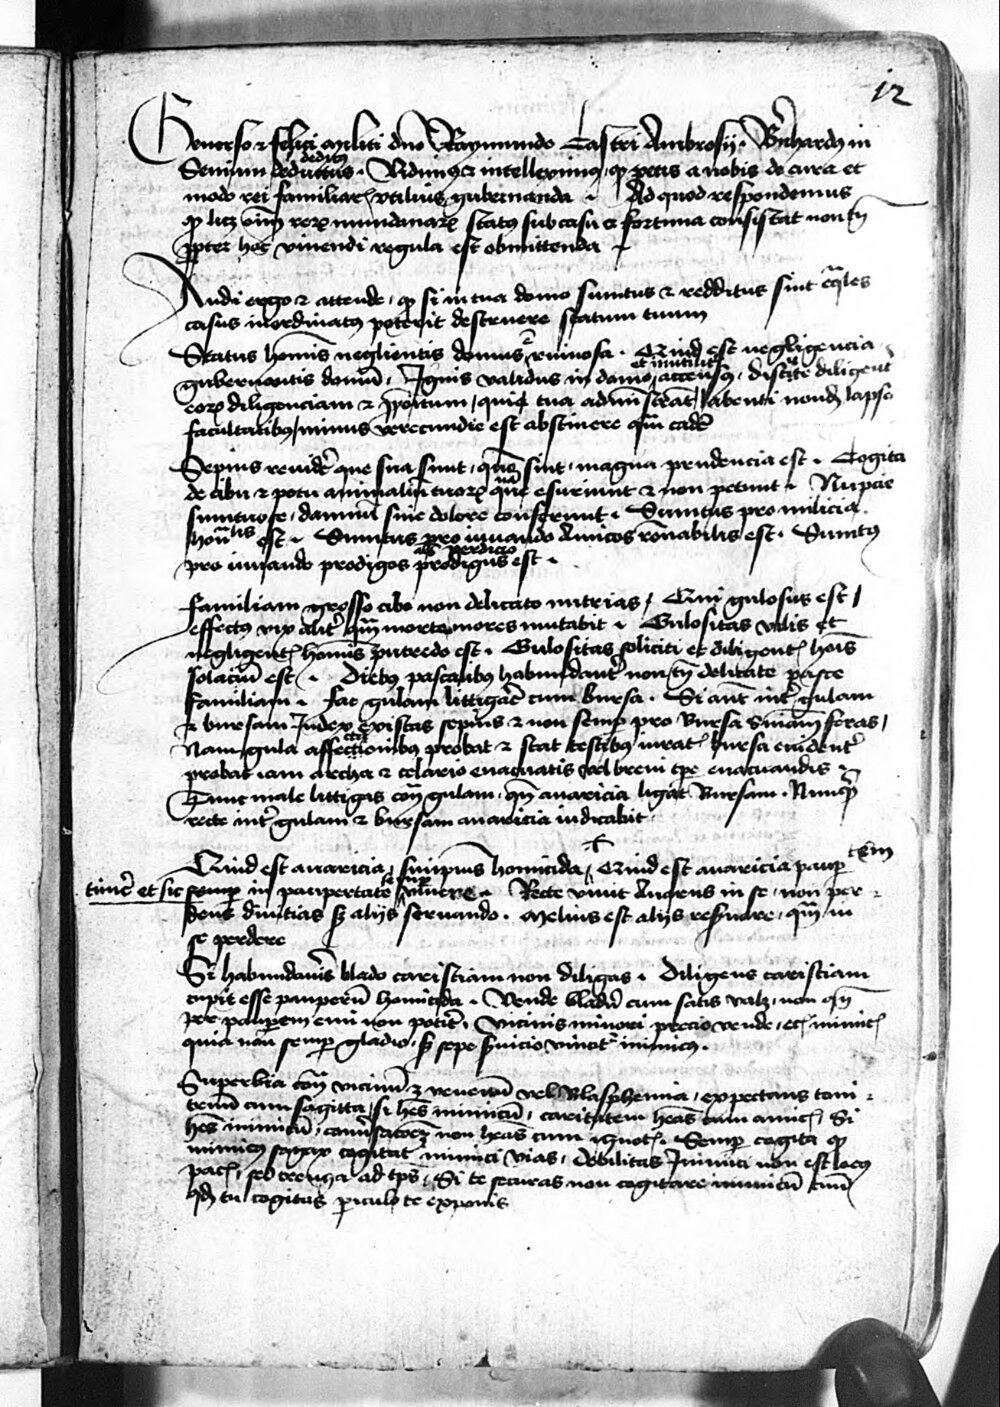 12
Generoso et felici militi dno Raymundo Castri Ambrosij. Bernhardus in
Senium deductus. deditus Vidimus et intelleximus qp petis a nobis de cura et
modo rei familiaris utilius gubernanda. Ad quod respondemus
qp licet omnium rerum mundanarum status sub casu et fortuna consistat non tn
propter hoc vivendi regula est obmittenda
Audi ergo et attende, qp si in tua domo sumtus et redditus sint eqles
casus inordinatus poterit destruere statum tuum
Status hominis negligentis domus est ruinosa. Quid est negligencia
gubernantis domum, Ignis validus in domo et inutiliter accensus. discute diligenter
eorum diligenciam et propositum, qui tua administrat, labenti nondum lapso
facultatibus, minus verecundie est abstinere quam cadere
Sepius revidere que sua sunt, quomodo sint, magna prudencia est. Cogita
de cibu et potu animalium tuorum quia esuriunt et non petunt. Nupcie
sumtuose, damnum sine dolore conferunt. Sumtus pro milicia
honorabilis est. Sumtus pro iuvando Amicos ronabilis est. Sumtus
pro iuvando prodigos prodigus als perdicio est.
Familiam grosso cibo non delicato nutrias, Qui gulosus est
effectus vix aliter quam morte mores mutabit. Gulositas vilis et
negligentis hominis putredo est. Gulositas soliciti et diligentis hominis
solacium est. Diebus pascalibus habundanter non tn delicate pasce
familiam. Fac gulam littigare cum bursa. Si autem inter gulam
et bursam Iudex existas sepius et non semper pro bursa sententiam feras,
Nam gula affectionibus probat et stat testibus iuratis bursa evidenter
probat iam archa et celario evacuatis vel brevi tpe evacuandis.
Tunc male littigas contra gulam, quando avaricia ligat Bursam. Nunquam
recte inter gulam et bursam avaricia iudicabit
Quid est avaricia, sui ipsius homicida, Quid est avaricia paupertatem
timere et sic semper in paupertate semper vivere. Recte vivit Augens in se, non per-
dens divitias sed alijs servando. Melius est alijs reservare, quam in
se perdere
Si habundaveris blado caristiam non diligas. Diligens caristiam
cupit esse pauperum homicida. Vende bladum cum satis valet, non quando
per pauperem emi non poterit. Vicinis minori precio vende, et inimicis
quia non semper gladio, sed sepe servicio vincitur inimicus.
Superbia contra vicinum et venenum vel Blasphemia, expectans toni-
truum cum sagitta, si habes inimicum, caritatem habeas cum amicis, Si
habes inimicum, conversacionem non habeas cum ignotis. Semper cogita qp
inimicus semper cogitat inimici vias, debilitas Inimici non est locus
pacis, sed treuga ad tps, Si te securas non cogitare inimicum tuum
quod tu cogitas periculo te exponis